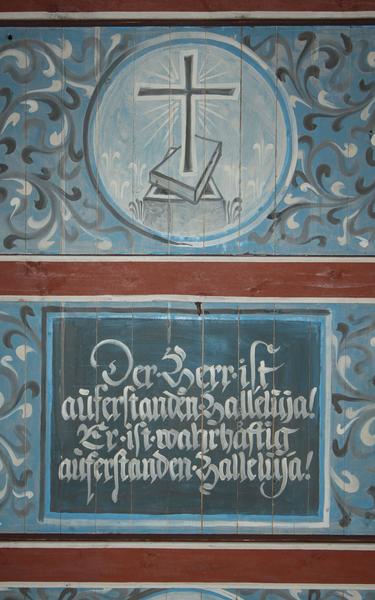 Der·Herr·ist
auferstanden·Halleluja!
Er·ist·wahrhaftig
auferstanden·Halleluja!